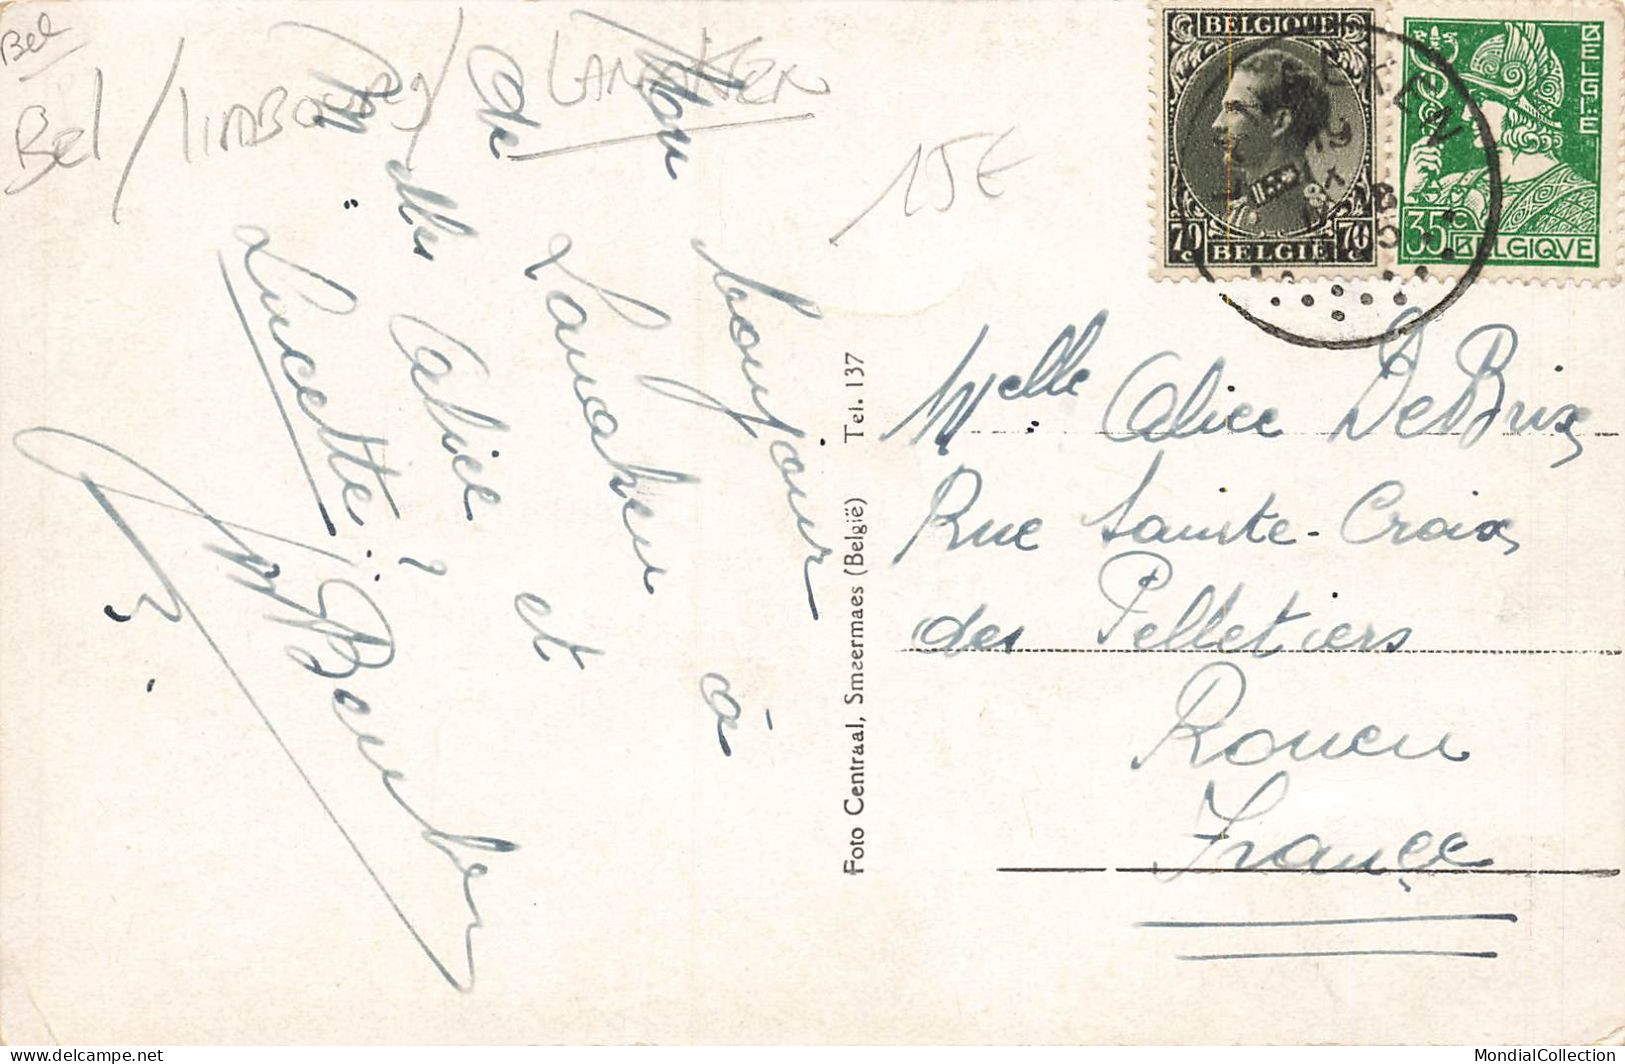 Bel
Bel / LIMBOURG / LANAKEN
15€
Mon bonjour à
de Lanaken et
Melle Alice
Lucette
Foto Centraal, Smeermaes (België) Tel. 137
BELGIQUE
70 70
BELGIË
BELGIE
35 c
BELGIQUE
19
Melle Alice DeBrix
Rue Sainte-Croix
des Pelletiers
Rouen
France
MondialCollection